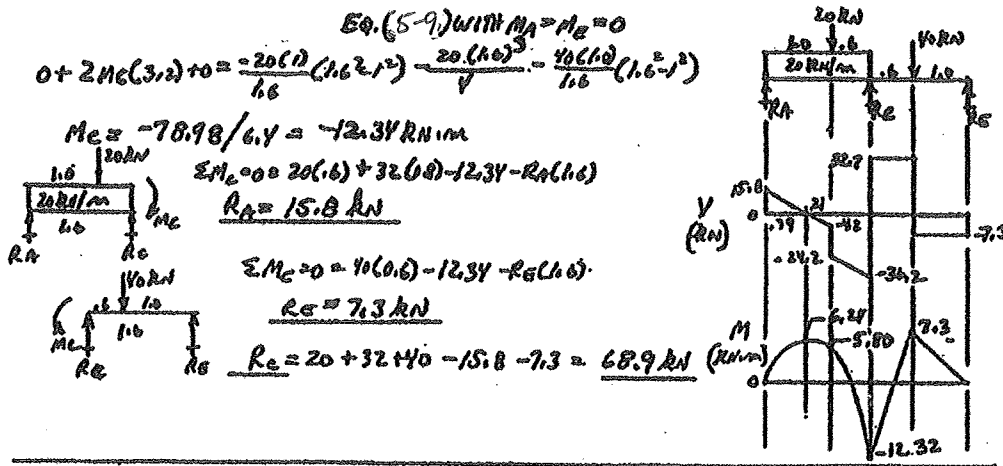 EQ.(5-9.) WITH MA = ME = 0
0 + 2MC(3,2) + 0 = -20(1)/1.6 (1.6²-1²) - 20(1.6)³/4 - 40(1.0)/1.6 (1.6²-1²)
MC = -78.98/6.4 = -12.34 KN·m
20KN
1.0
20KN/m
1.6
MC
RA
RC
ΣMC=0= 20(.6) + 32(0.8) -12.34 - RA(1.6)
RA = 15.8 KN
40KN
.6 1.0
1.6
MC
RC
RE
ΣMC=0 = 40(0.6) -12.34 - RE(1.6)
RE = 7.3 KN
RC = 20 + 32 + 40 - 15.8 - 7.3 = 68.9 KN
20KN
1.0 .6
40KN
20KN/m
.6 1.0
RA
RC
RE
32.7
15.8
V
(KN)
0
.79
.21
-4.2
-7.3
-24.2
-36.2
M
(KN·m)
6.24
5.80
7.3
0
-12.32